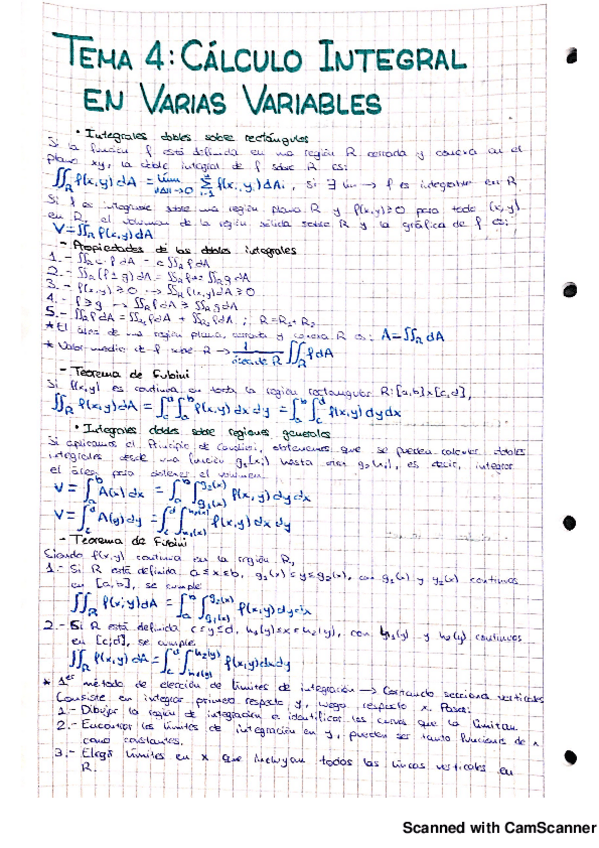 TEMA 4: CÁLCULO INTEGRAL
EN VARIAS VARIABLES
• Integrales dobles sobre rectángulos
Si la función f está definida en una región R cerrada y conexa en el
plano xy, la doble integral de f sobre R es:
∬_R f(x,y) dA = lím_{‖Δ‖→0} Σ_{i=1}^{n} f(x_i, y_i) dA_i, si ∃ lím → f es integrable en R.
Si f es integrable sobre una región plana R y f(x,y) ≥ 0 para todo (x,y)
en R, el volumen de la región sólida sobre R y la gráfica de f es:
V = ∬_R f(x,y) dA
- Propiedades de las dobles integrales
1.- ∬_R c·f dA = c ∬_R f dA
2.- ∬_R (f ± g) dA = ∬_R f dA ± ∬_R g dA
3.- f(x,y) ≥ 0 → ∬_R f(x,y) dA ≥ 0
4.- f ≥ g → ∬_R f dA ≥ ∬_R g dA
5.- ∬_R f dA = ∬_{R_1} f dA + ∬_{R_2} f dA ; R = R_1 · R_2
* El área de una región plana, cerrada y conexa R es: A = ∬_R dA
* Valor medio de f sobre R → 1/(área de R) ∬_R f dA
- Teorema de Fubini
Si f(x,y) es continua en toda la región rectangular R: [a,b]x[c,d],
∬_R f(x,y) dA = ∫_c^d ∫_a^b f(x,y) dx dy = ∫_a^b ∫_c^d f(x,y) dy dx
• Integrales dobles sobre regiones generales
Si aplicamos el Principio de Cavalieri, obtenemos que se pueden calcular dobles
integrales desde una función g_1(x) hasta otra g_2(x), es decir, integrar
el área para obtener el volumen.
V = ∫_a^b A(x) dx = ∫_a^b ∫_{g_1(x)}^{g_2(x)} f(x,y) dy dx
V = ∫_c^d A(y) dy = ∫_c^d ∫_{h_1(y)}^{h_2(y)} f(x,y) dx dy
- Teorema de Fubini
Siendo f(x,y) continua en la región R,
1.- Si R está definida a ≤ x ≤ b, g_1(x) ≤ y ≤ g_2(x), con g_1(x) y g_2(x) continuas
en [a,b], se cumple
∬_R f(x,y) dA = ∫_a^b ∫_{g_1(x)}^{g_2(x)} f(x,y) dy dx
2.- Si R está definida c ≤ y ≤ d, h_1(y) ≤ x ≤ h_2(y), con h_1(y) y h_2(y) continuas
en [c,d], se cumple
∬_R f(x,y) dA = ∫_c^d ∫_{h_1(y)}^{h_2(y)} f(x,y) dx dy
* 1er método de elección de límites de integración → Cortando secciones verticales
Consiste en integrar primero respecto y, luego respecto x. Pasos:
1.- Dibujar la región de integración e identificar las curvas que la limitan
2.- Encontrar los límites de integración en y, pueden ser tanto funciones de x
como constantes.
3.- Elegir límites en x que incluyan todas las líneas verticales en
R.
Scanned with CamScanner